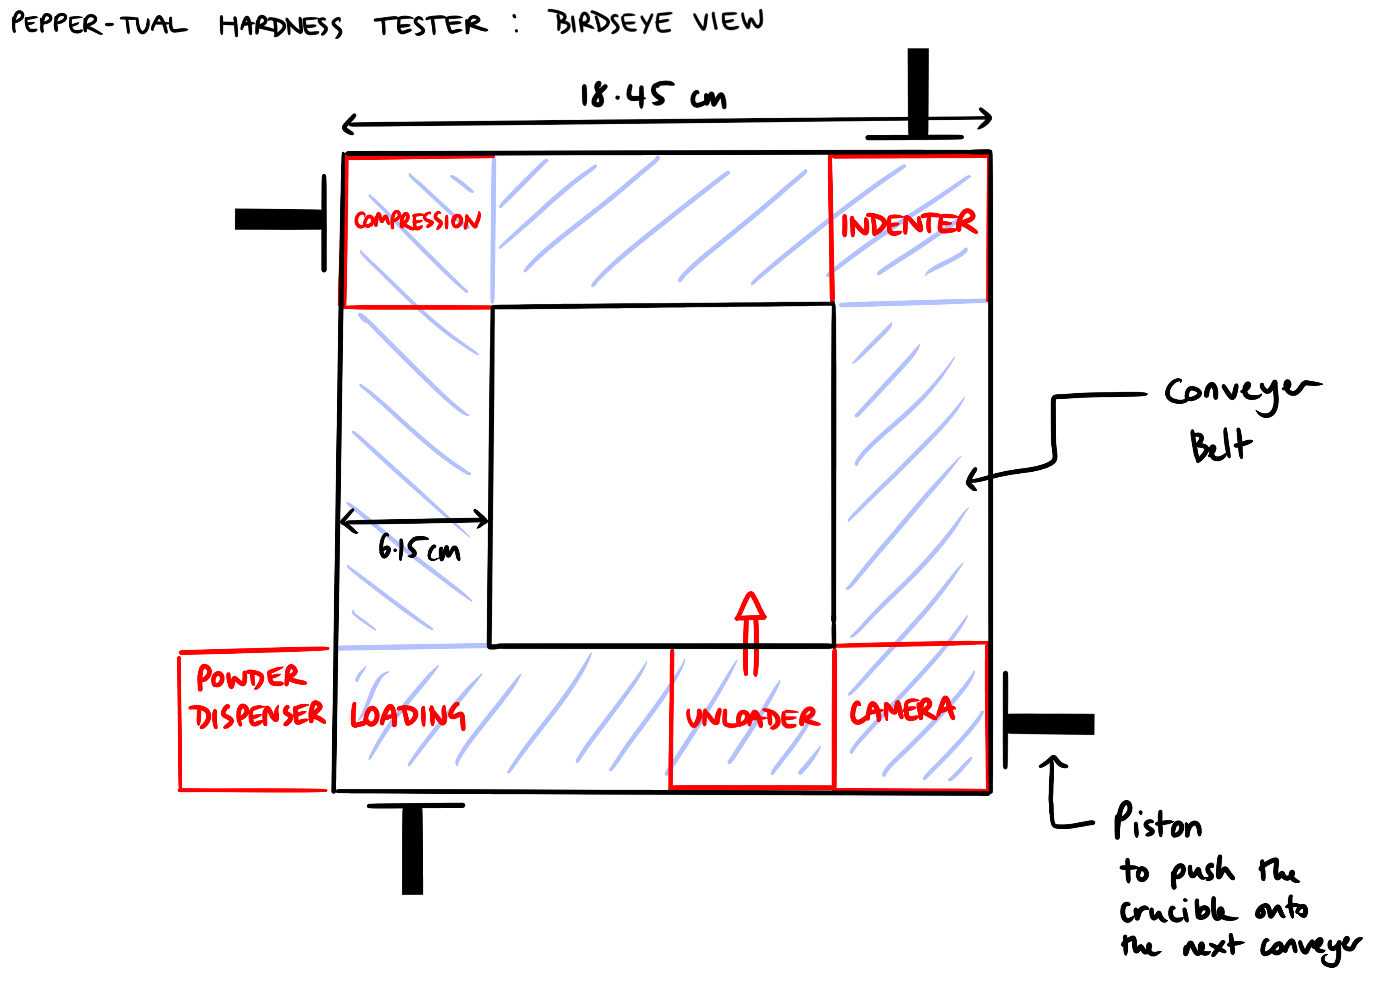 PEPPER-TUAL HARDNESS TESTER : BIRDSEYE VIEW
18.45 cm
COMPRESSION
INDENTER
Conveyer
Belt
6.15cm
POWDER
DISPENSER
LOADING
UNLOADER
CAMERA
Piston
to push the
crucible onto
the next conveyer